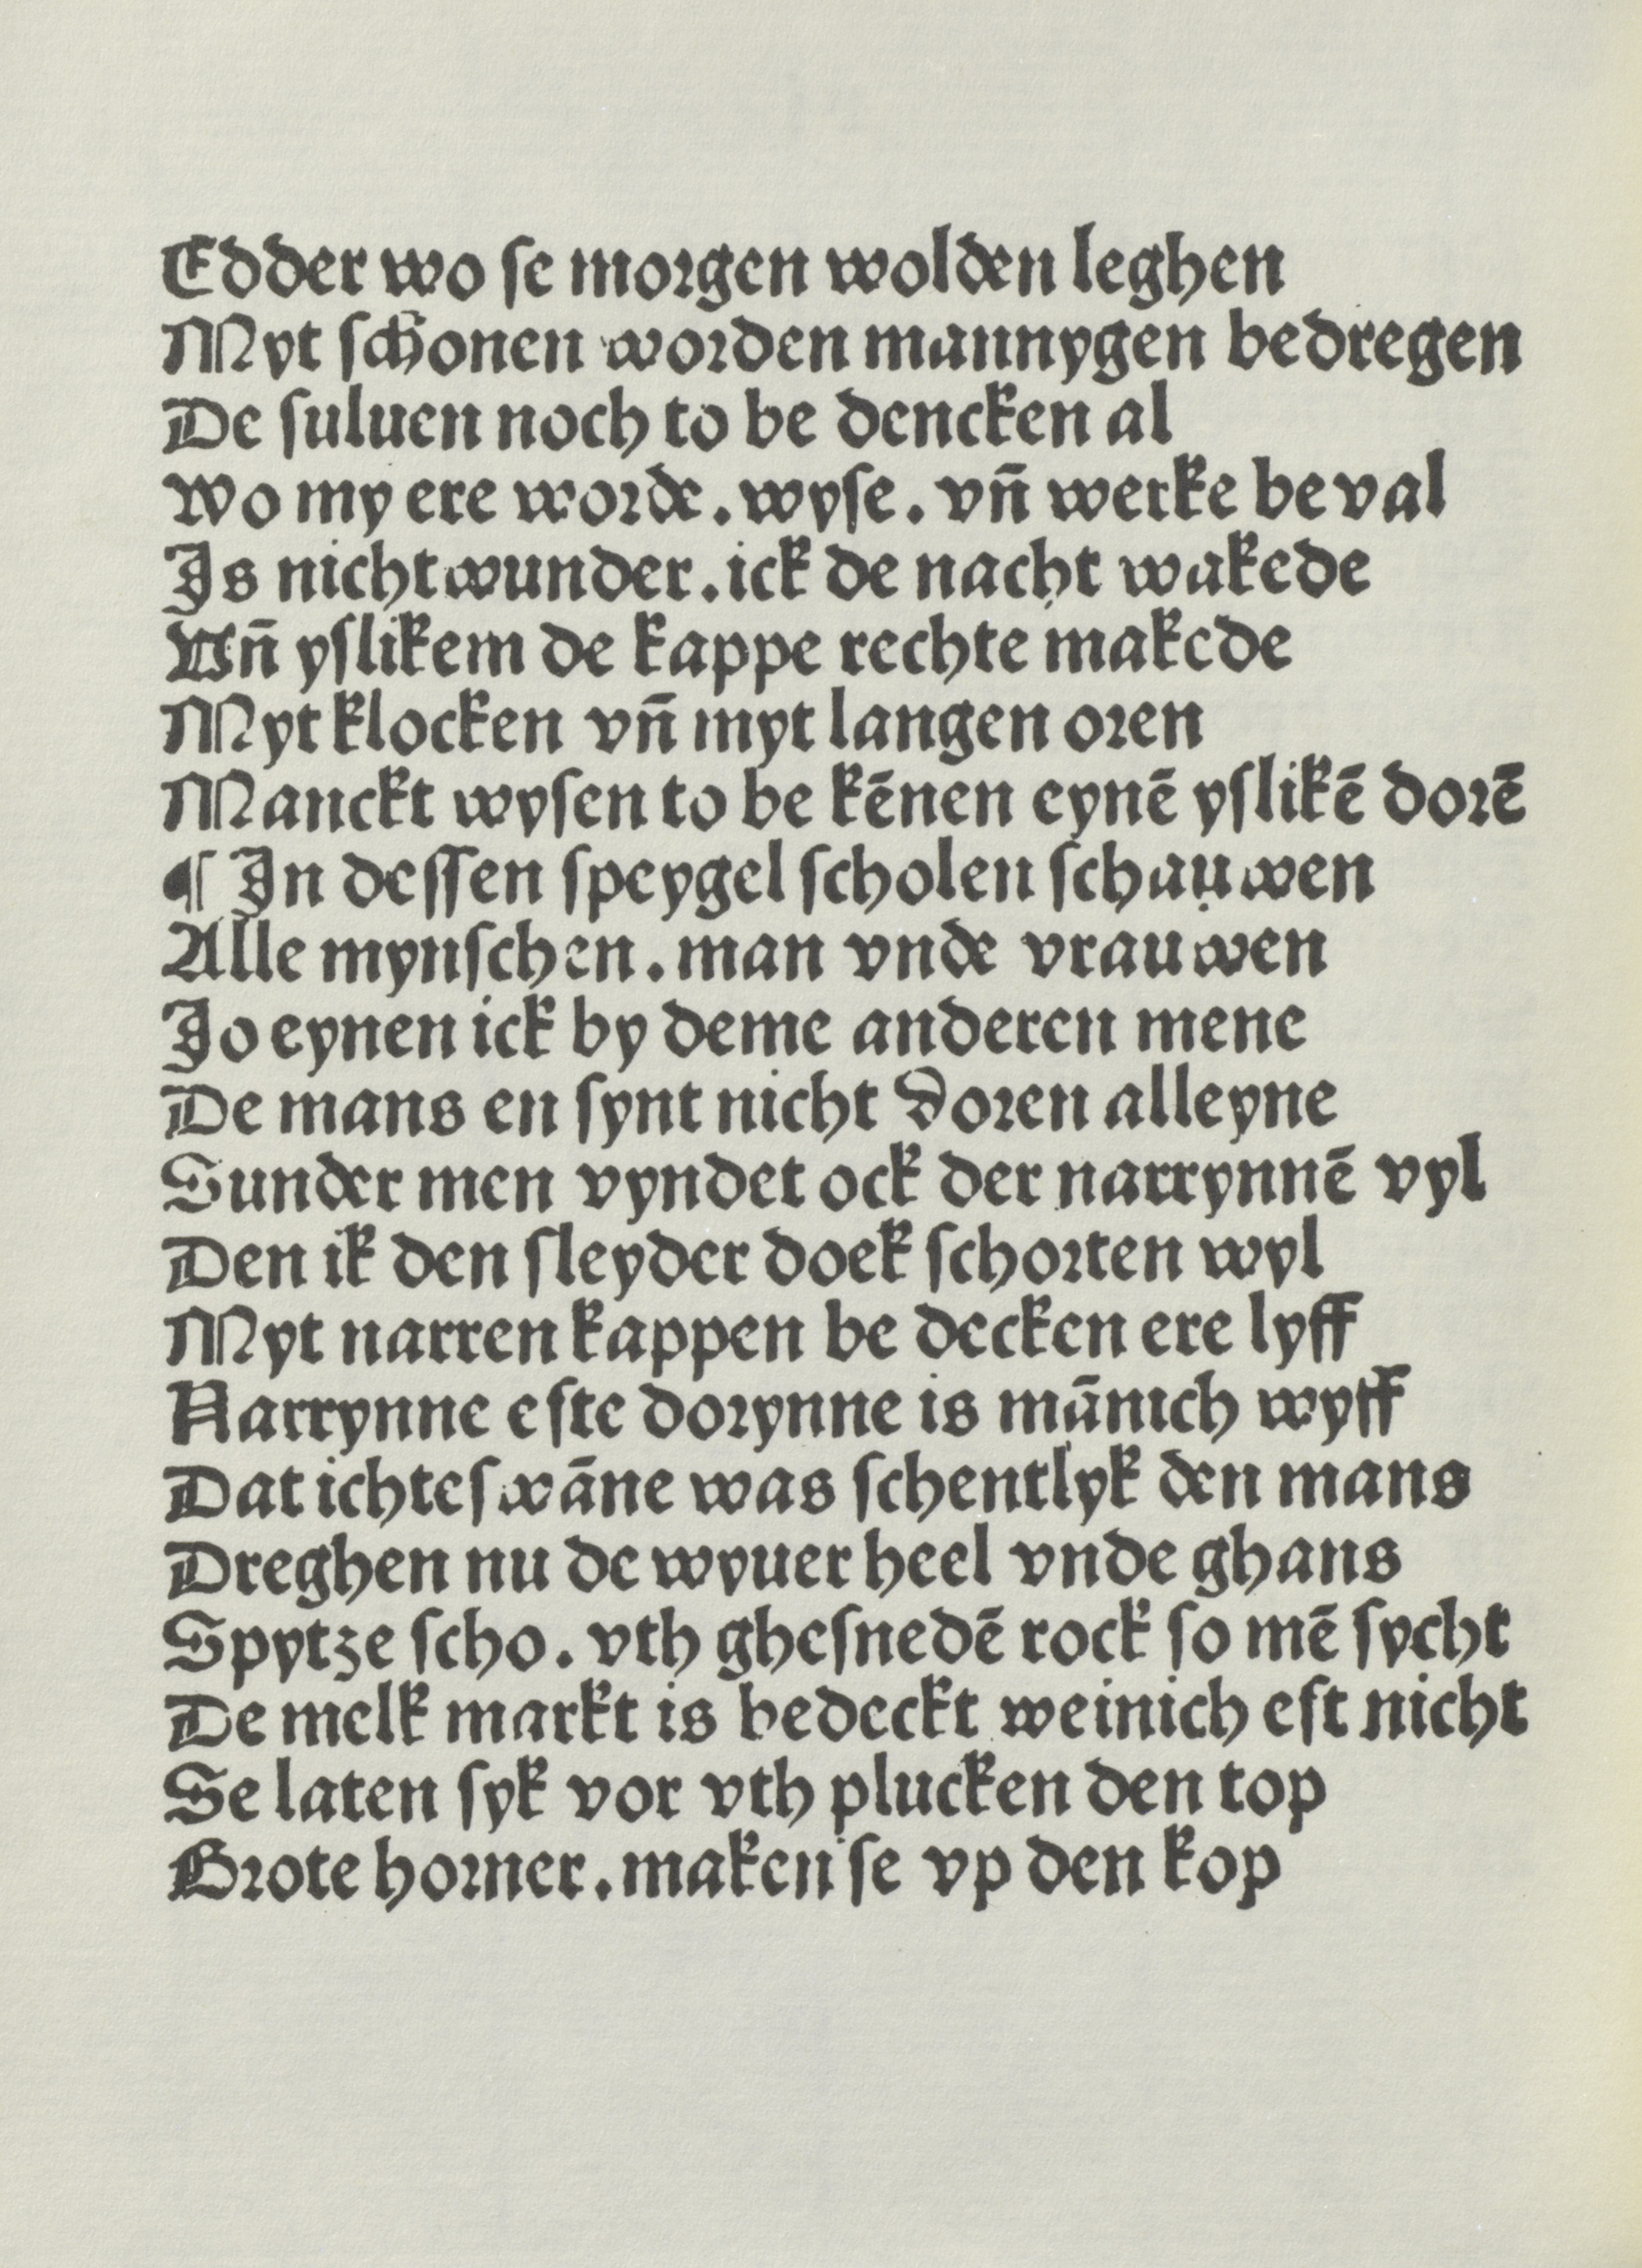 Edder wo ſe morgen wolden leghen
Myt ſchonen worden mannygen bedregen
De ſuluen noch to be dencken al
Wo my ere worde. wyſe. vn̄ werke beval
Is nicht wunder. ick de nacht wakede
Vn̄ yſlikem de kappe rechte makede
Myt klocken vn̄ myt langen oren
Manckt wyſen to be kēnen eynē yſlikē dorē
¶ In deſſen ſpeygel ſcholen ſchauwen
Alle mynſchen. man vnde vrauwen
Jo eynen ick by deme anderen mene
De mans en ſynt nicht doren alleyne
Sunder men vyndet ock der narrynnē vyl
Den ik den ſleyder doek ſchorten wyl
Myt narren kappen be decken ere lyff
Narrynne eſte dorynne is mānich wyff
Dat ichteſwāne was ſchentlyk den mans
Dreghen nu de wyuer heel vnde ghans
Spytze ſcho. vth gheſnedē rock ſo mē ſycht
De melk markt is bedeckt weinich eft nicht
Se laten ſyk vor vth plucken den top
Grote horner. maken ſe vp den kop